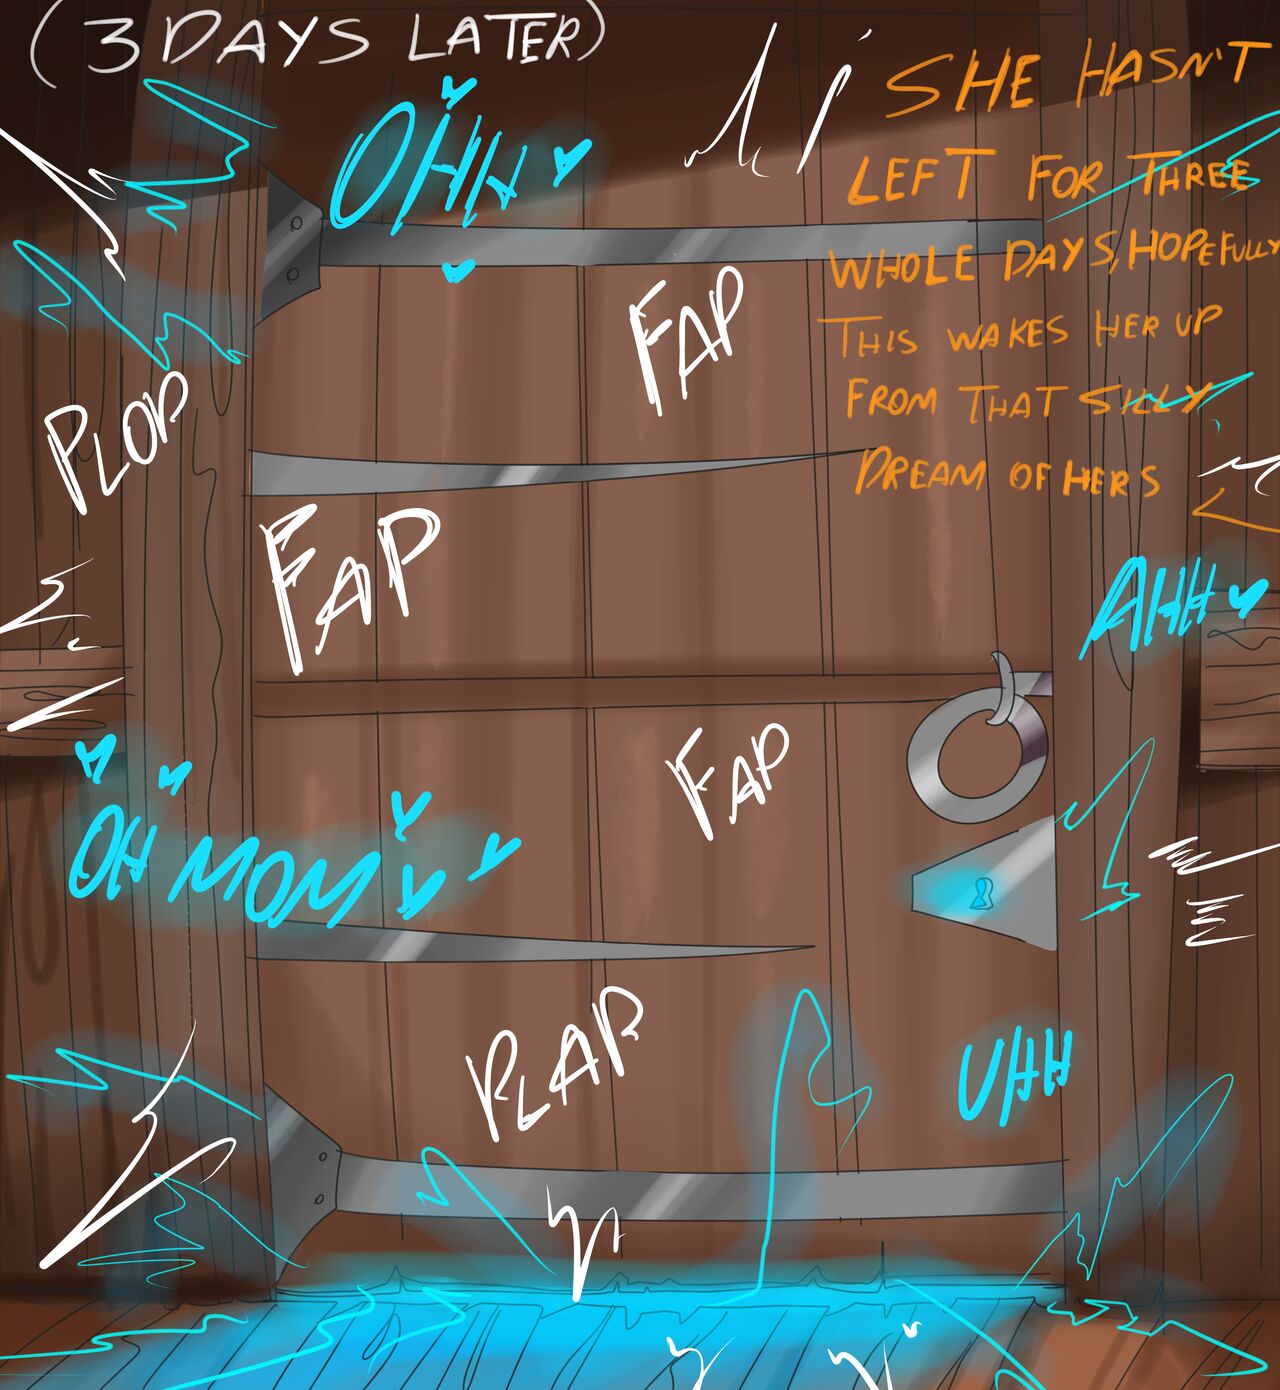 (3 DAYS LATER)
OHH
SHE HASN'T
LEFT FOR THREE
WHOLE DAYS, HOPEFULLY
THIS WAKES HER UP
FROM THAT SILLY
DREAM OF HERS
FAP
PLOP
FAP
AHH
FAP
OH MOM
PLAP
UHH